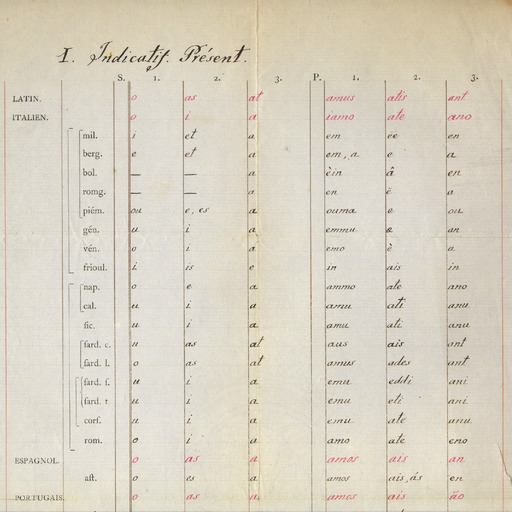 I. Indicatif. Présent.
S. 1. 2. 3. P. 1. 2. 3.
LATIN. o as at amus atis ant
ITALIEN. o i a iamo ate ano
mil. i et a em ee en
berg. e et a em, a e a
bol. — — a èin â en
romg. — — a en ë a
piém. ou e, es a ouma e ou
gén. u i a emmu an
vén. o i a emo è a
frioul. i is e in ais in
nap. o e a ammo ate ano
cal. u i a amu ati anu
ſic. u i a amu ati anu
ſard. c. u as at aus ais ant
ſard. l. o as at amus ades ant
ſard. ſ. u i a emu eddi ani
ſard. t. u i a emu eti ani
corſ. u i a emu ate anu
rom. o i a amo ate eno
ESPAGNOL. o as a amos ais an
aſt. o es a amos ais, ás en
PORTUGAIS. o as a amos ais ão